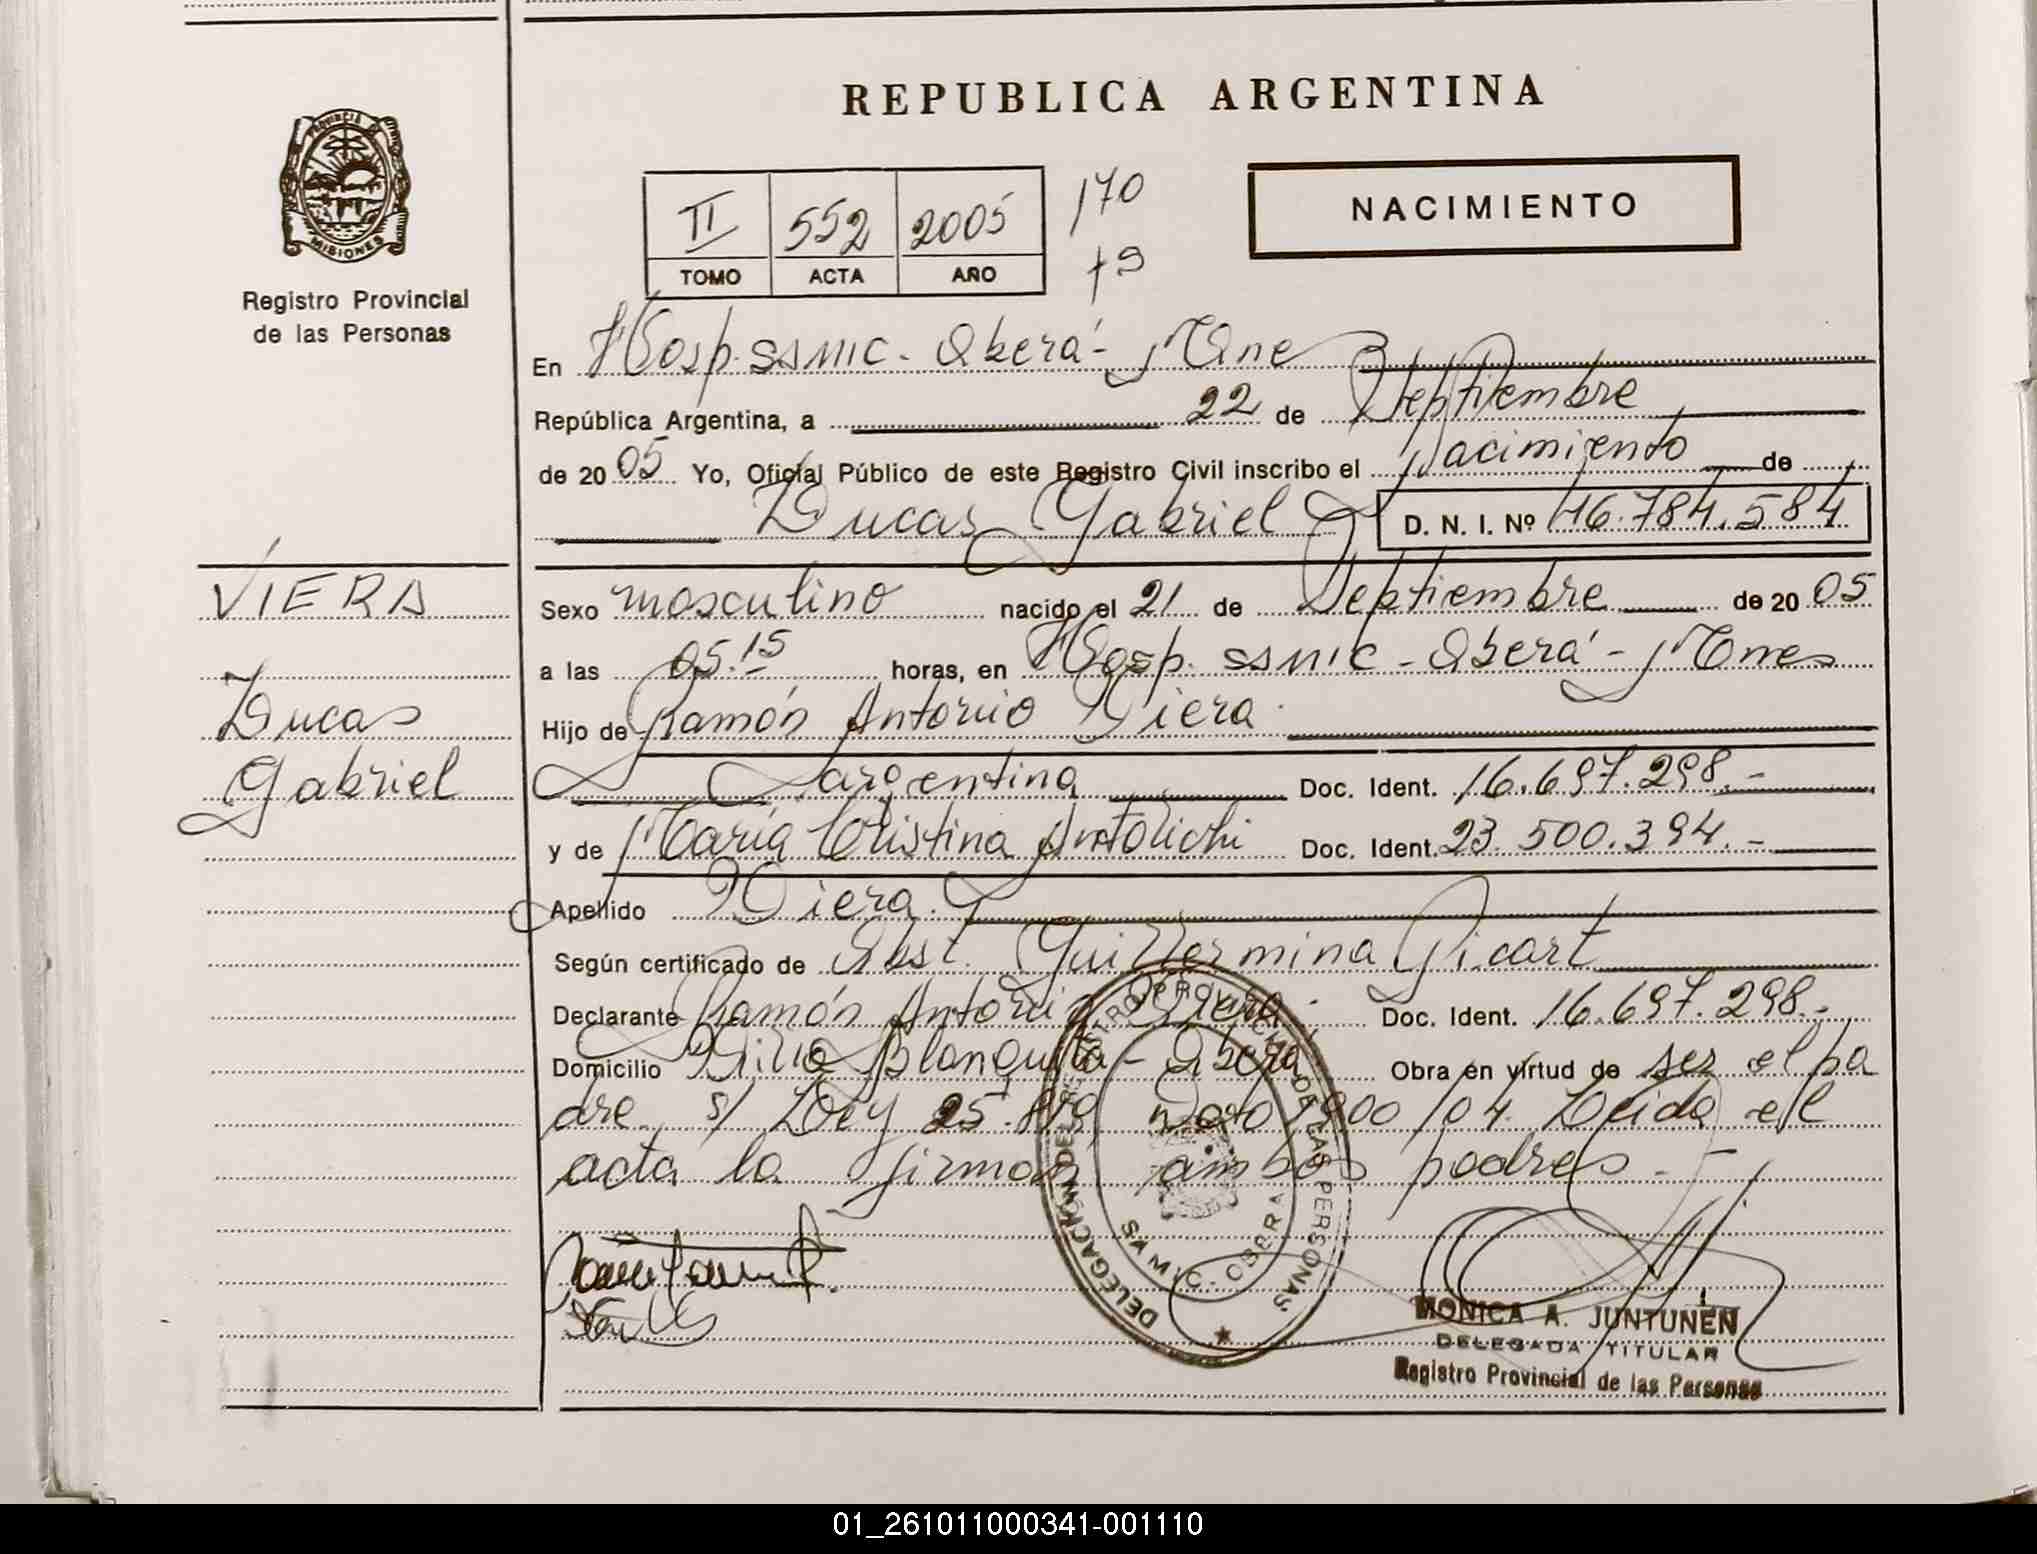 REPUBLICA ARGENTINA
PROVINCIA
MISIONES
Registro Provincial
de las Personas
II 552 2005
TOMO ACTA AÑO
170
NACIMIENTO
En Hosp. SSMIC - Oberá - Mnes
República Argentina, a 22 de Septiembre
de 2005 Yo, Oficial Público de este Registro Civil inscribo el Nacimiento de
Lucas Gabriel D. N. I. Nº 46.784.584
VIERA
Lucas
Gabriel
Sexo masculino nacido el 21 de Septiembre de 2005
a las 05.15 horas, en Hosp. SSMIC - Oberá - Mnes
Hijo de Ramón Antonio Viera
argentina Doc. Ident. 16.697.298.-
y de María Cristina Antolichi Doc. Ident. 23.500.394.-
Apellido Viera.
Según certificado de Obst. Guillermina Picart
Declarante Ramón Antonio Viera. Doc. Ident. 16.697.298.-
Domicilio Villa Blanquita - Oberá Obra en virtud de ser el pa
dre s/ Ley 25.819 1900/04. Leida el
acta la firman ambos padres.-
DELEGACION DEL REGISTRO PROVINCIAL DE LAS PERSONAS
SAMIC. OBERA
MONICA A. JUNTUNEN
DELEGADA TITULAR
Registro Provincial de las Personas
01_261011000341-001110